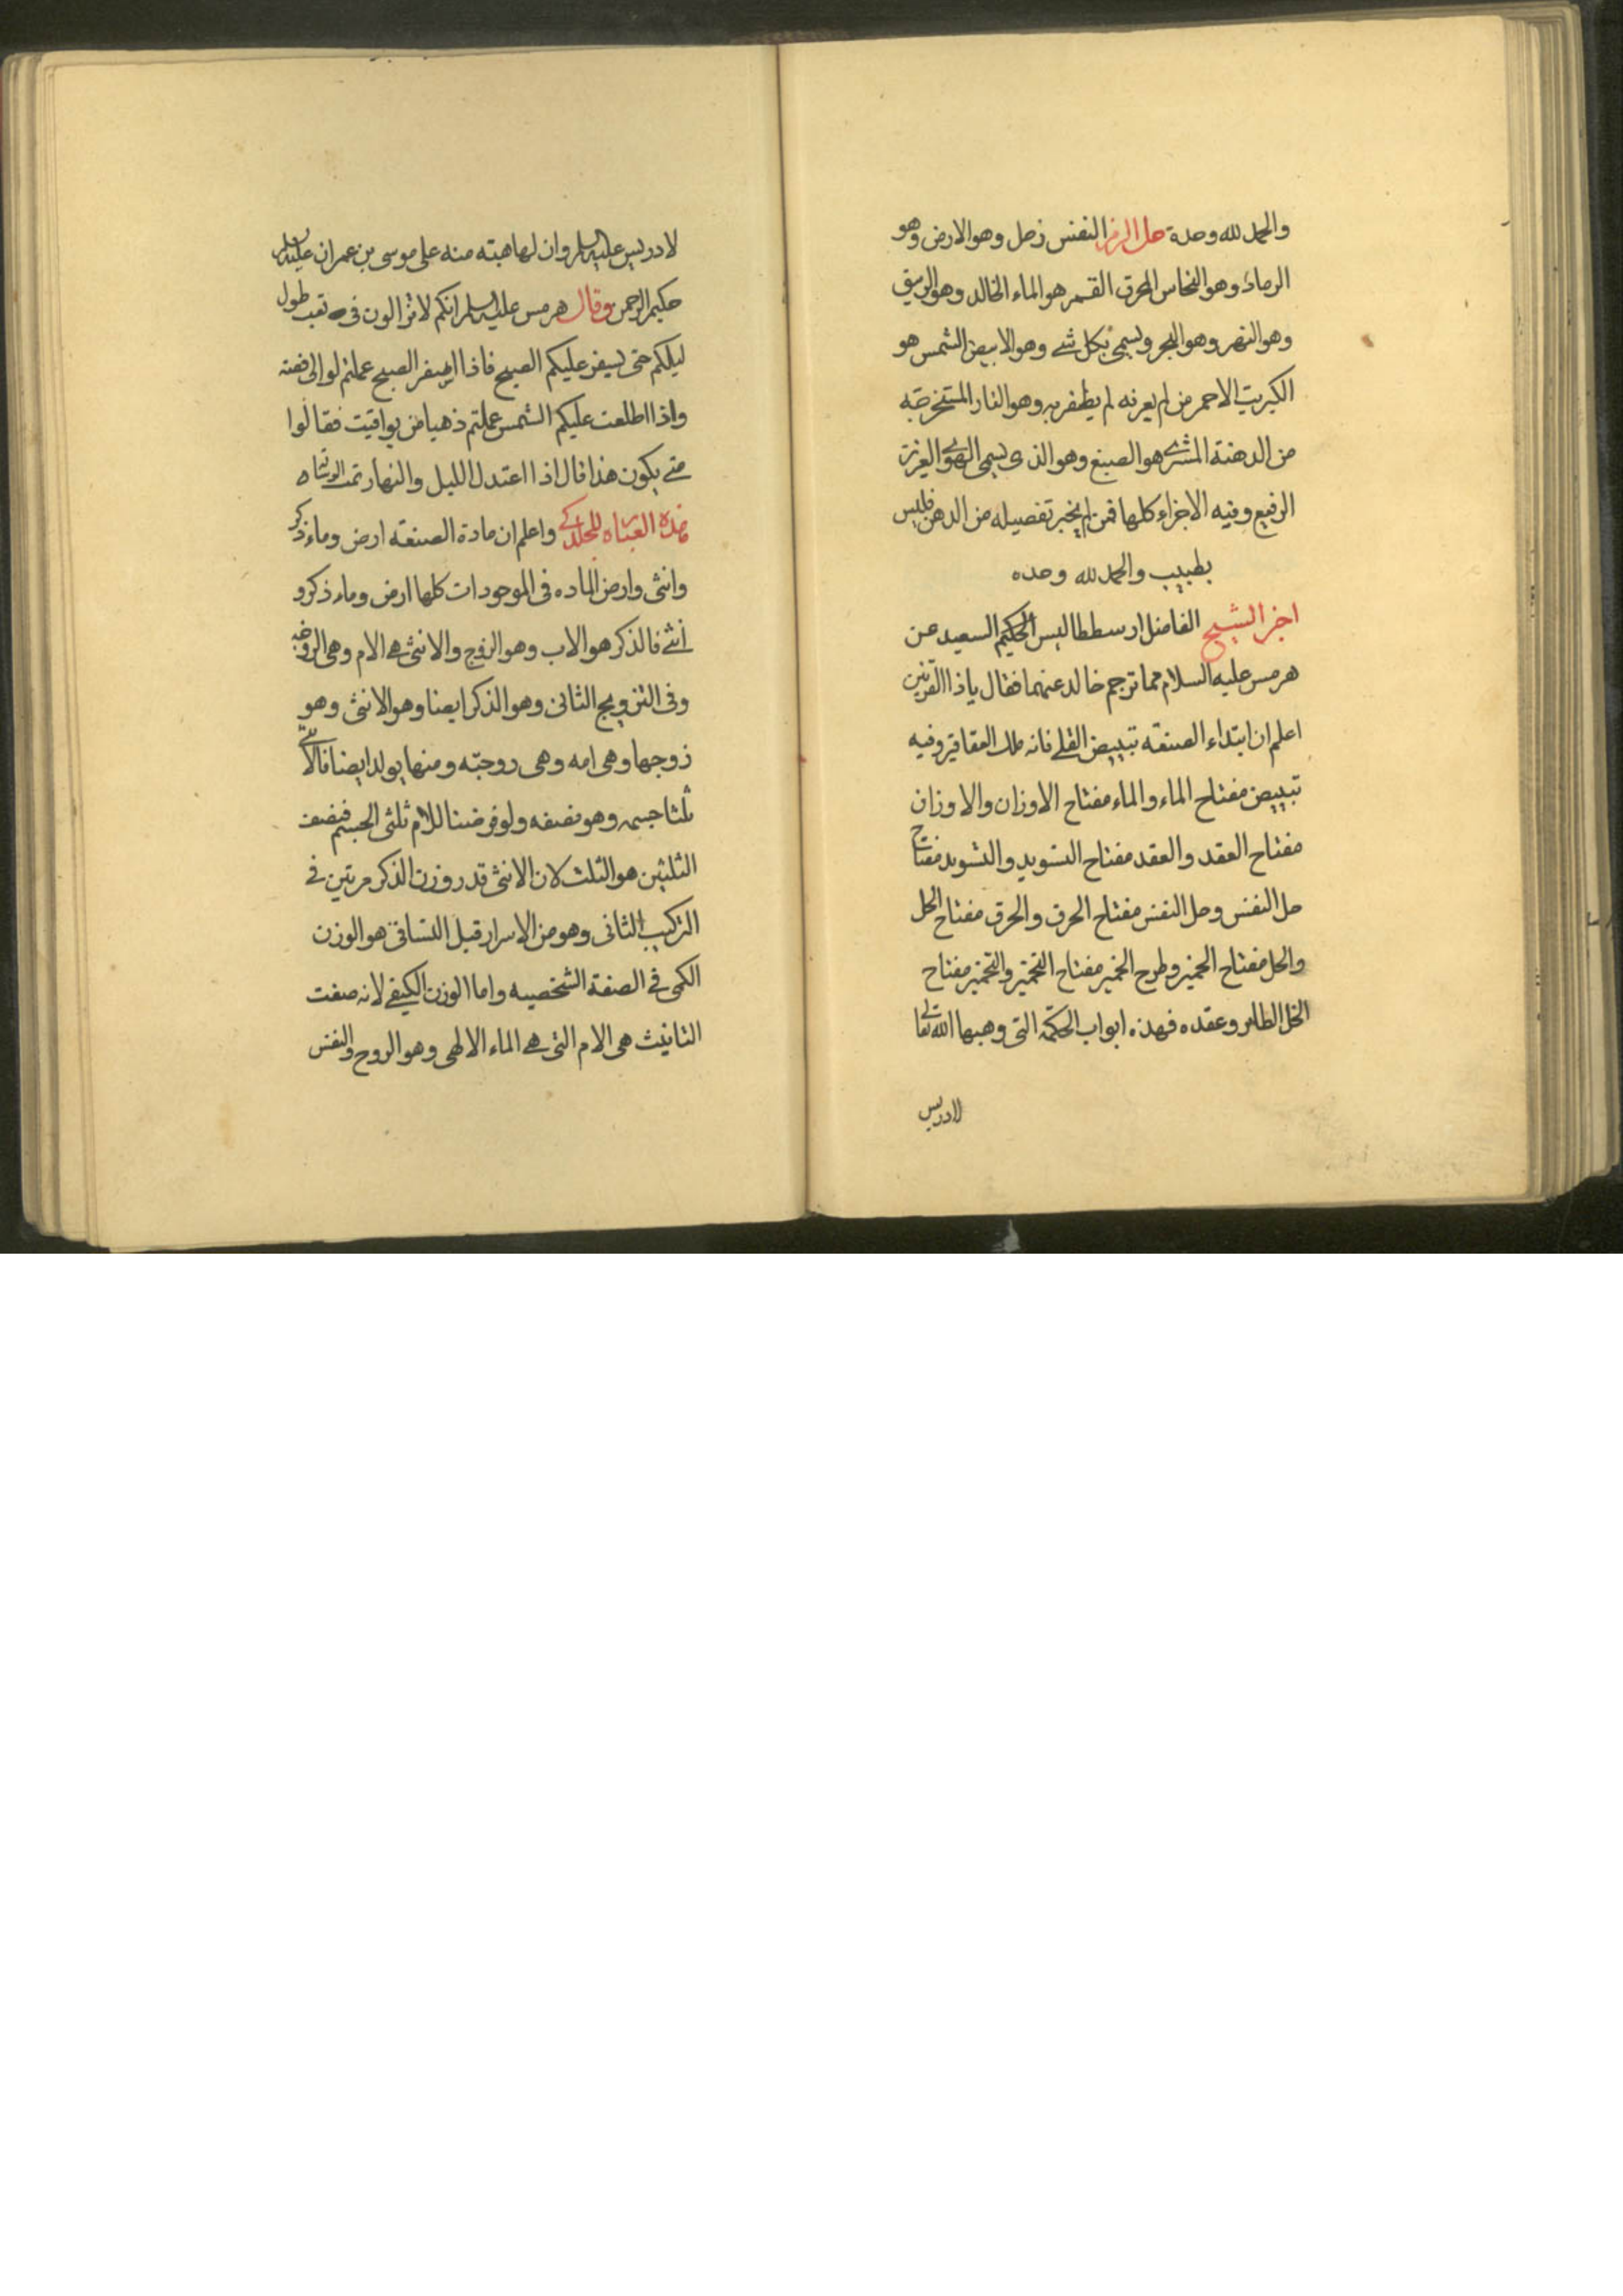 والحمد لله وحدة حل الرمز النفس زحل وهو الارض وهو
الرماد وهو النحاس المحرق القمر هو الماء الخالد وهو الزيبق
وهو النهر وهو البحر ويسمى بكل شے وهو الابيض الشمس هو
الكبريت الاحمر من لم يعرفه لم يظفر به وهو النار المستخرجة
من الدهنة المشترے هو الصبغ وهو الذى يسمى الهوے العزيز
الرفيع وفيه الاجزاء كلها فمن لم يخبر تفصيله من الدهن فليس
بطبيب والحمد لله وحده
اخبر الشيخ الفاضل ارسططاليس الحكيم السعيد عن
هرمس عليه السلام مما ترجم خالد عنهما فقال ياذا القرنين
اعلم ان ابتداء الصنعه تبييض القلے فانه ملك العقاقير وفيه
تبييض مفتاح الماء والماء مفتاح الاوزان والاوزان
مفتاح العقد والعقد مفتاح التسويد والتسويد مفتاح
حل النفس وحل النفس مفتاح الحرق والحرق مفتاح الحل
والحل مفتاح الخمير وطرح الخمير مفتاح التخمير والتخمير مفتاح
الخل الطاهر وعقده فهذه ابواب الحكمة التى وهبها الله تعالى
لادريس
لادريس عليه السلم وان لها هبته منه على موسى بن عمران عليه السلم
حكيم الرحمن وقال هرمس عليه السلم انكم لا تزالون فى تعب طول
ليلكم حتى يسفر عليكم الصبح فاذا اسفر الصبح عملتم لوالى فضته
واذا اطلعت عليكم الشمس عملتم ذهبا من يواقيت فقالوا
متے يكون هذا قال اذا اعتدل الليل والنهار تمت
هذه للجلدكے واعلم ان مادة الصنعه ارض وماء ذكر
وانثى وارض الماده فى الموجودات كلها ارض وماء ذكر و
انثے فالذكر هو الاب وهو الزوج والانثى هے الام وهى الزوجه
وفى التزويج الثانى وهو الذكر ايضا وهو الانثى وهو
زوجها وهى امه وهى زوجته ومنها يولد ايضا فالانثے
ثلثا جسمه وهو نصفه ولو فرضنا للام ثلثى الجسم فنصف
الثلثين هو الثلث لان الانثى قدر وزن الذكر مرتين فے
التركيب الثانى وهو من الاسرار قبل التساقى هو الوزن
الكمى فے الصفة الشخصيه واما الوزن الكيفے لانه صفت
التانيث هى الام التى هے الماء الالهى وهو الروح والنفس